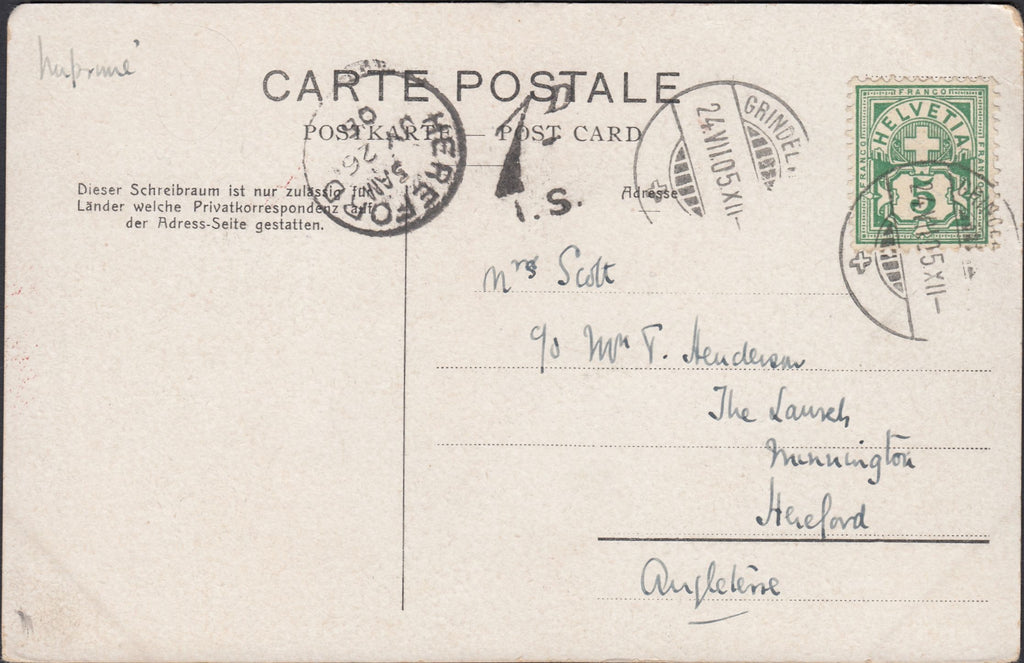 Imprimé
CARTE POSTALE
POSTKARTE — POST CARD
Dieser Schreibraum ist nur zulässig für
Länder welche Privatkorrespondenz auf
der Adress-Seite gestatten.
HEREFORD
26
05
1D
I.S.
Adresse
GRINDEL
24.VII.05.XII
FRANCO
HELVETIA
FRANCO
FRANCO
5
05.XII
Mrs Scott
c/o Mrs T. Henderson
The Laurels
Munnington
Hereford
Angleterre